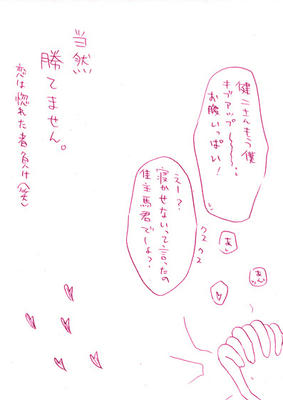 健二さんもう僕
ギブアップ〜〜、
お腹いっぱい！
えー？
寝かせないって言ったの
佳主馬君でしょ？
クスクス
当然
勝てません。
恋は惚れた者負け(笑)